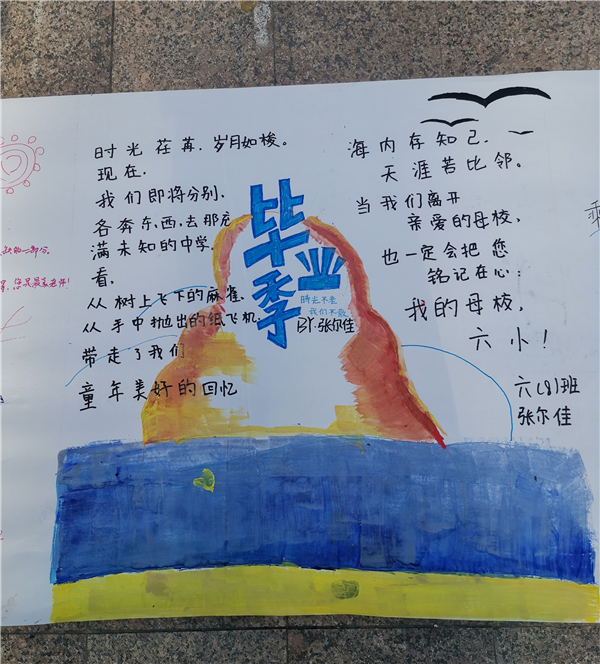 时光荏苒.岁月如梭。
现在.
我们即将分别.
各奔东.西.去那充
满未知的中学.
看.
从树上飞下的麻雀.
从手中抛出的纸飞机.
带走了我们
童年美好的回忆
毕业季
時光不老
我们不散
BY.张尔佳
海内存知己.
天涯若比邻。
当我们离开
亲爱的母校.
也一定会把您
铭记在心:
我的母校,
六小!
六(8)班
张尔佳